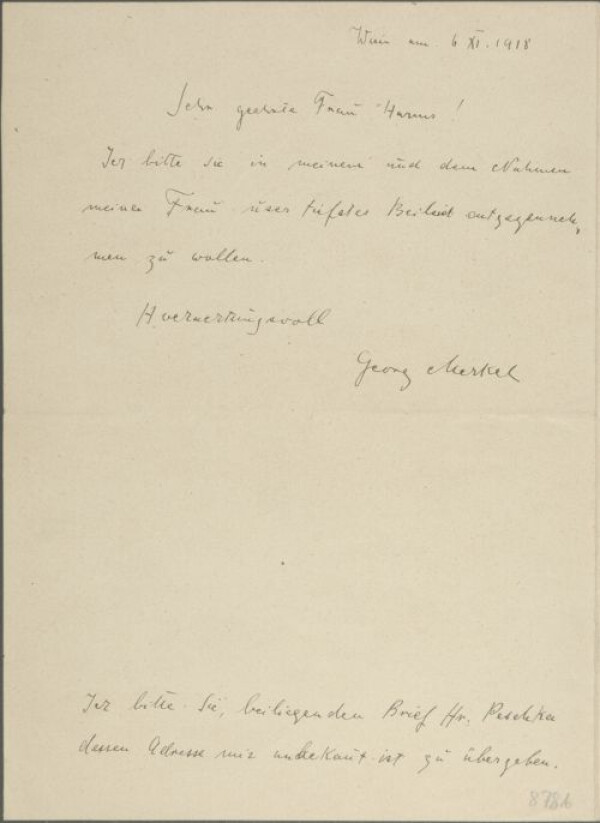 Wien am 6 XI. 1918
Sehr geehrte Frau Harms!
Ich bitte sie in meinem und dem Nahmen
meiner Frau unser tiefstes Beileid entgegenneh,
men zu wollen.
Georg Merkel
Ich bitte Sie, beiliegenden Brief Hr. Peschka
dessen Adresse mir unbekant ist zu übergeben.
8786